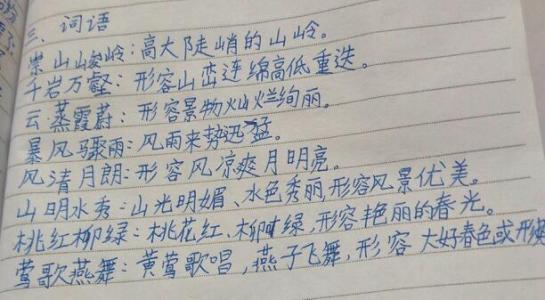 三、词语
崇山峻岭：高大陡峭的山岭。
千岩万壑：形容山峦连绵高低重迭。
云蒸霞蔚：形容景物灿烂绚丽。
暴风骤雨：风雨来势迅猛。
风清月朗：形容风凉爽月明亮。
山明水秀：山光明媚、水色秀丽,形容风景优美。
桃红柳绿：桃花红、柳叶绿,形容艳丽的春光。
莺歌燕舞：黄莺歌唱,燕子飞舞,形容大好春色或形